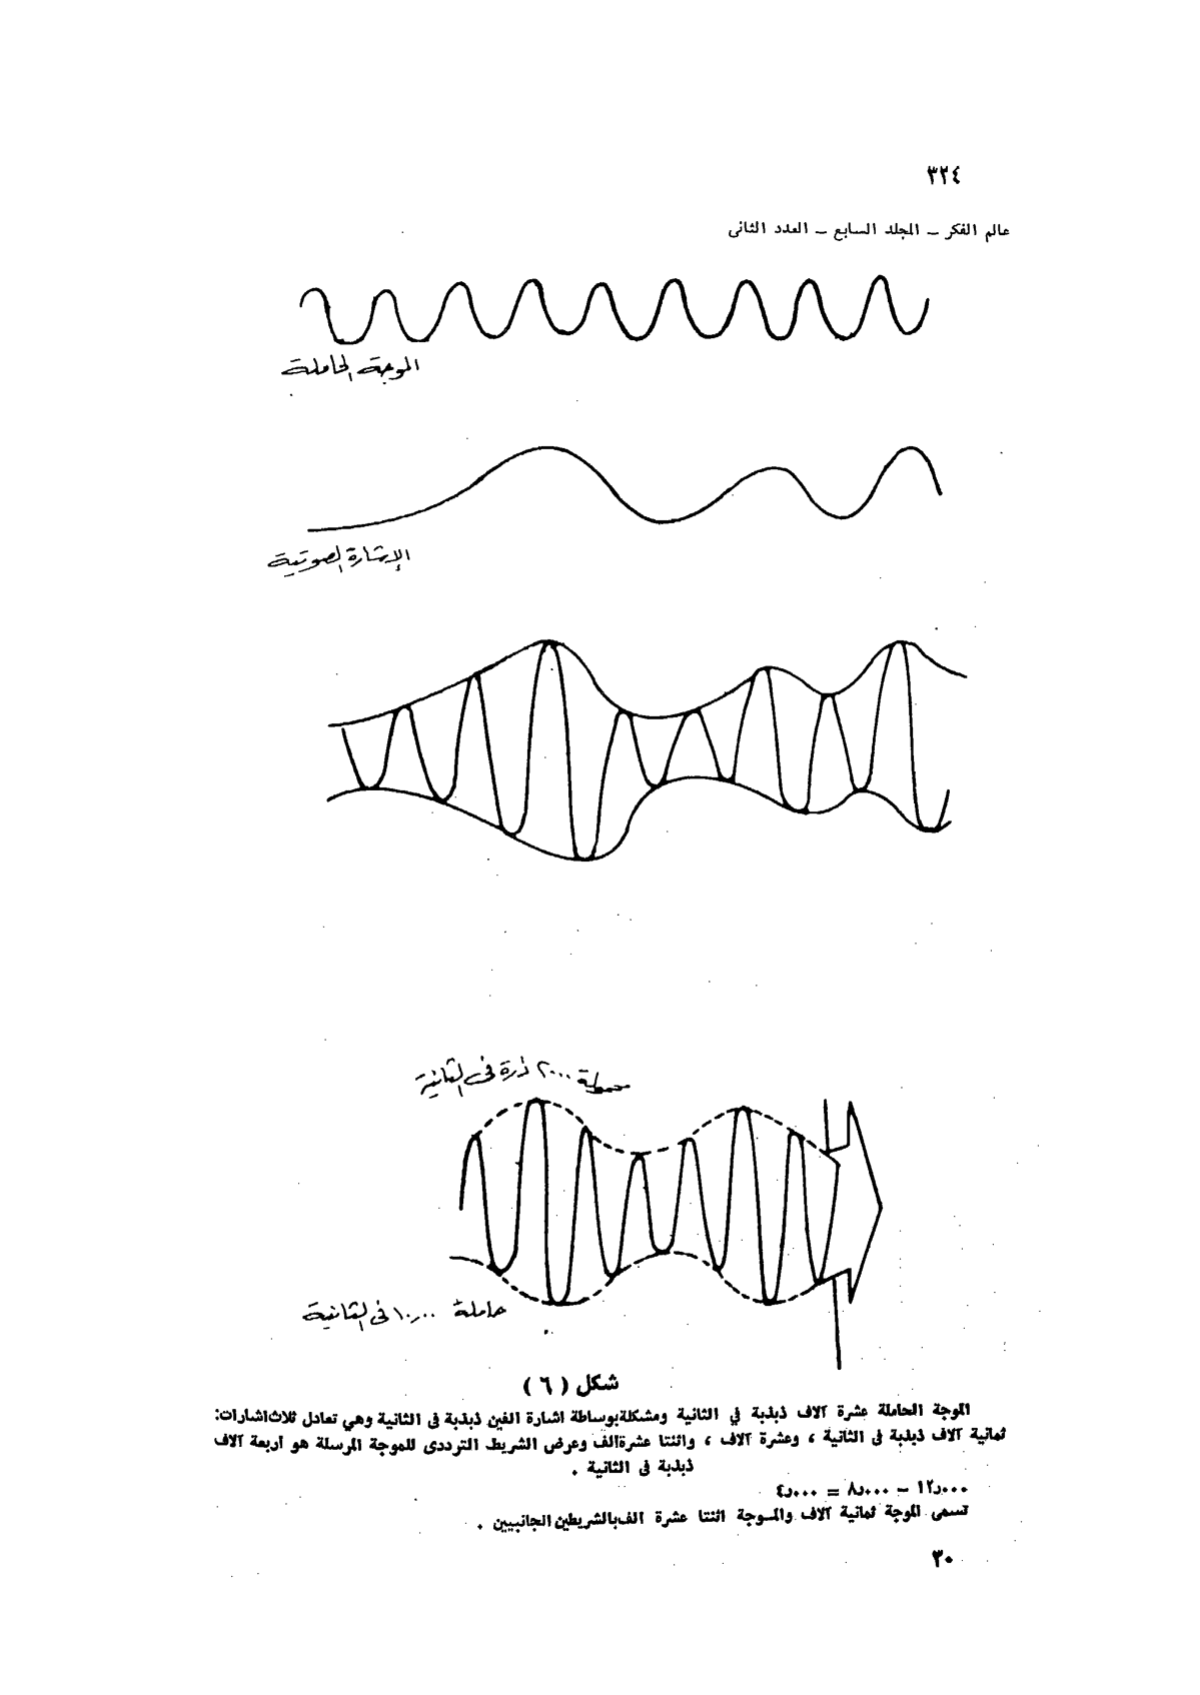 ٣٢٤
عالم الفكر – المجلد السابع – العدد الثانى
الموجة الحاملة
الإشارة الصوتية
محمولة ٢٠٠٠ ذرة فى الثانية
حاملة ١٠٫٠٠٠ فى الثانية
شكل ( ٦ )
الموجة الحاملة عشرة آلاف ذبذبة في الثانية ومشكلة بوساطة اشارة الفين ذبذبة فى الثانية وهي تعادل ثلاث اشارات:
ثمانية آلاف ذبذبة فى الثانية ، وعشرة آلاف ، واثنتا عشرة ألف وعرض الشريط الترددى للموجة المرسلة هو اربعة آلاف
ذبذبة فى الثانية .
١٢٫٠٠٠ – ٨٫٠٠٠ = ٤٫٠٠٠
تسمى الموجة ثمانية آلاف والموجة اثنتا عشرة الف بالشريطين الجانبيين .
٣٠